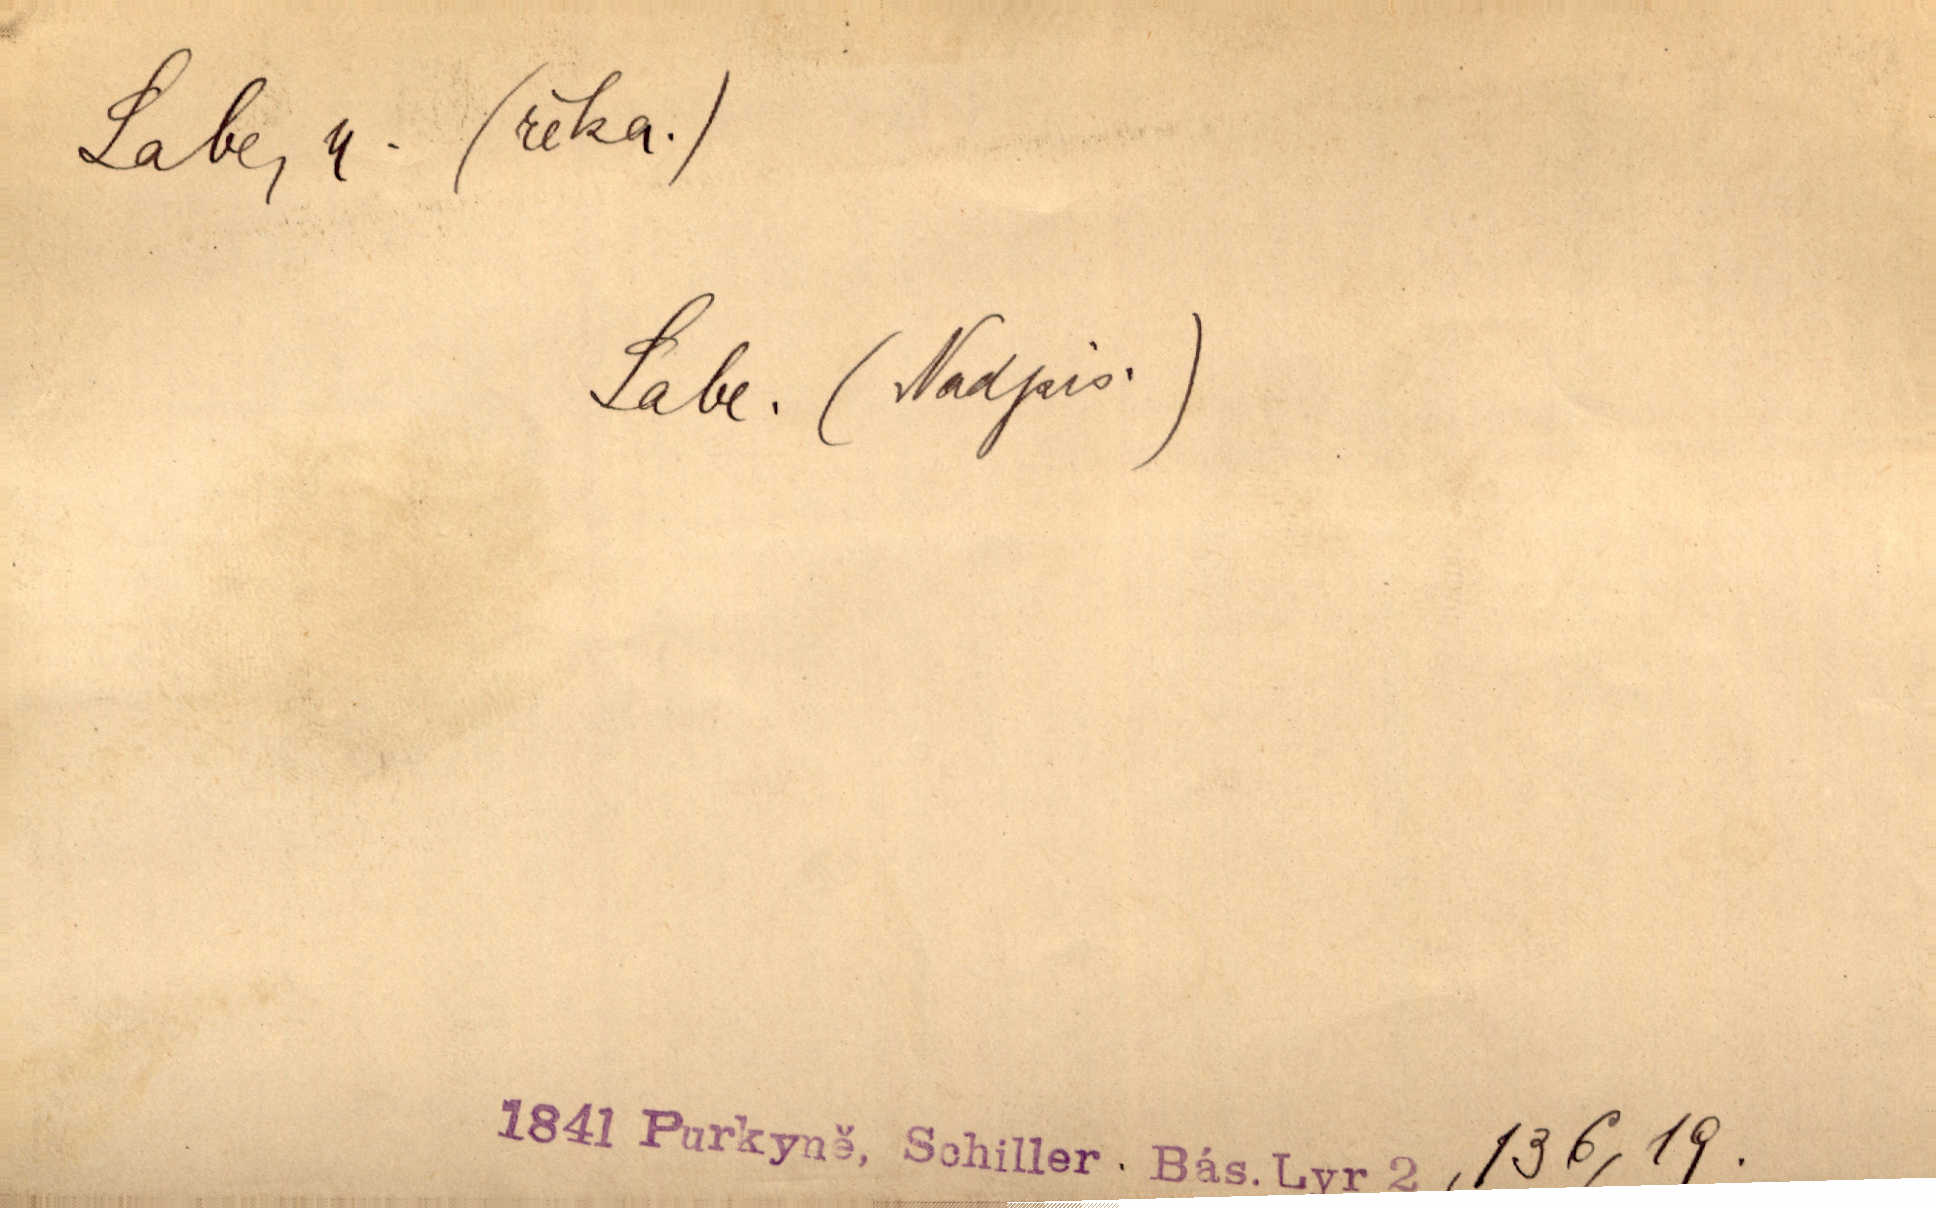 Labe, n. (řeka.)
Labe. (Nadpis.)
1841 Purkyně, Schiller. Bás. Lyr 2, 136, 19.